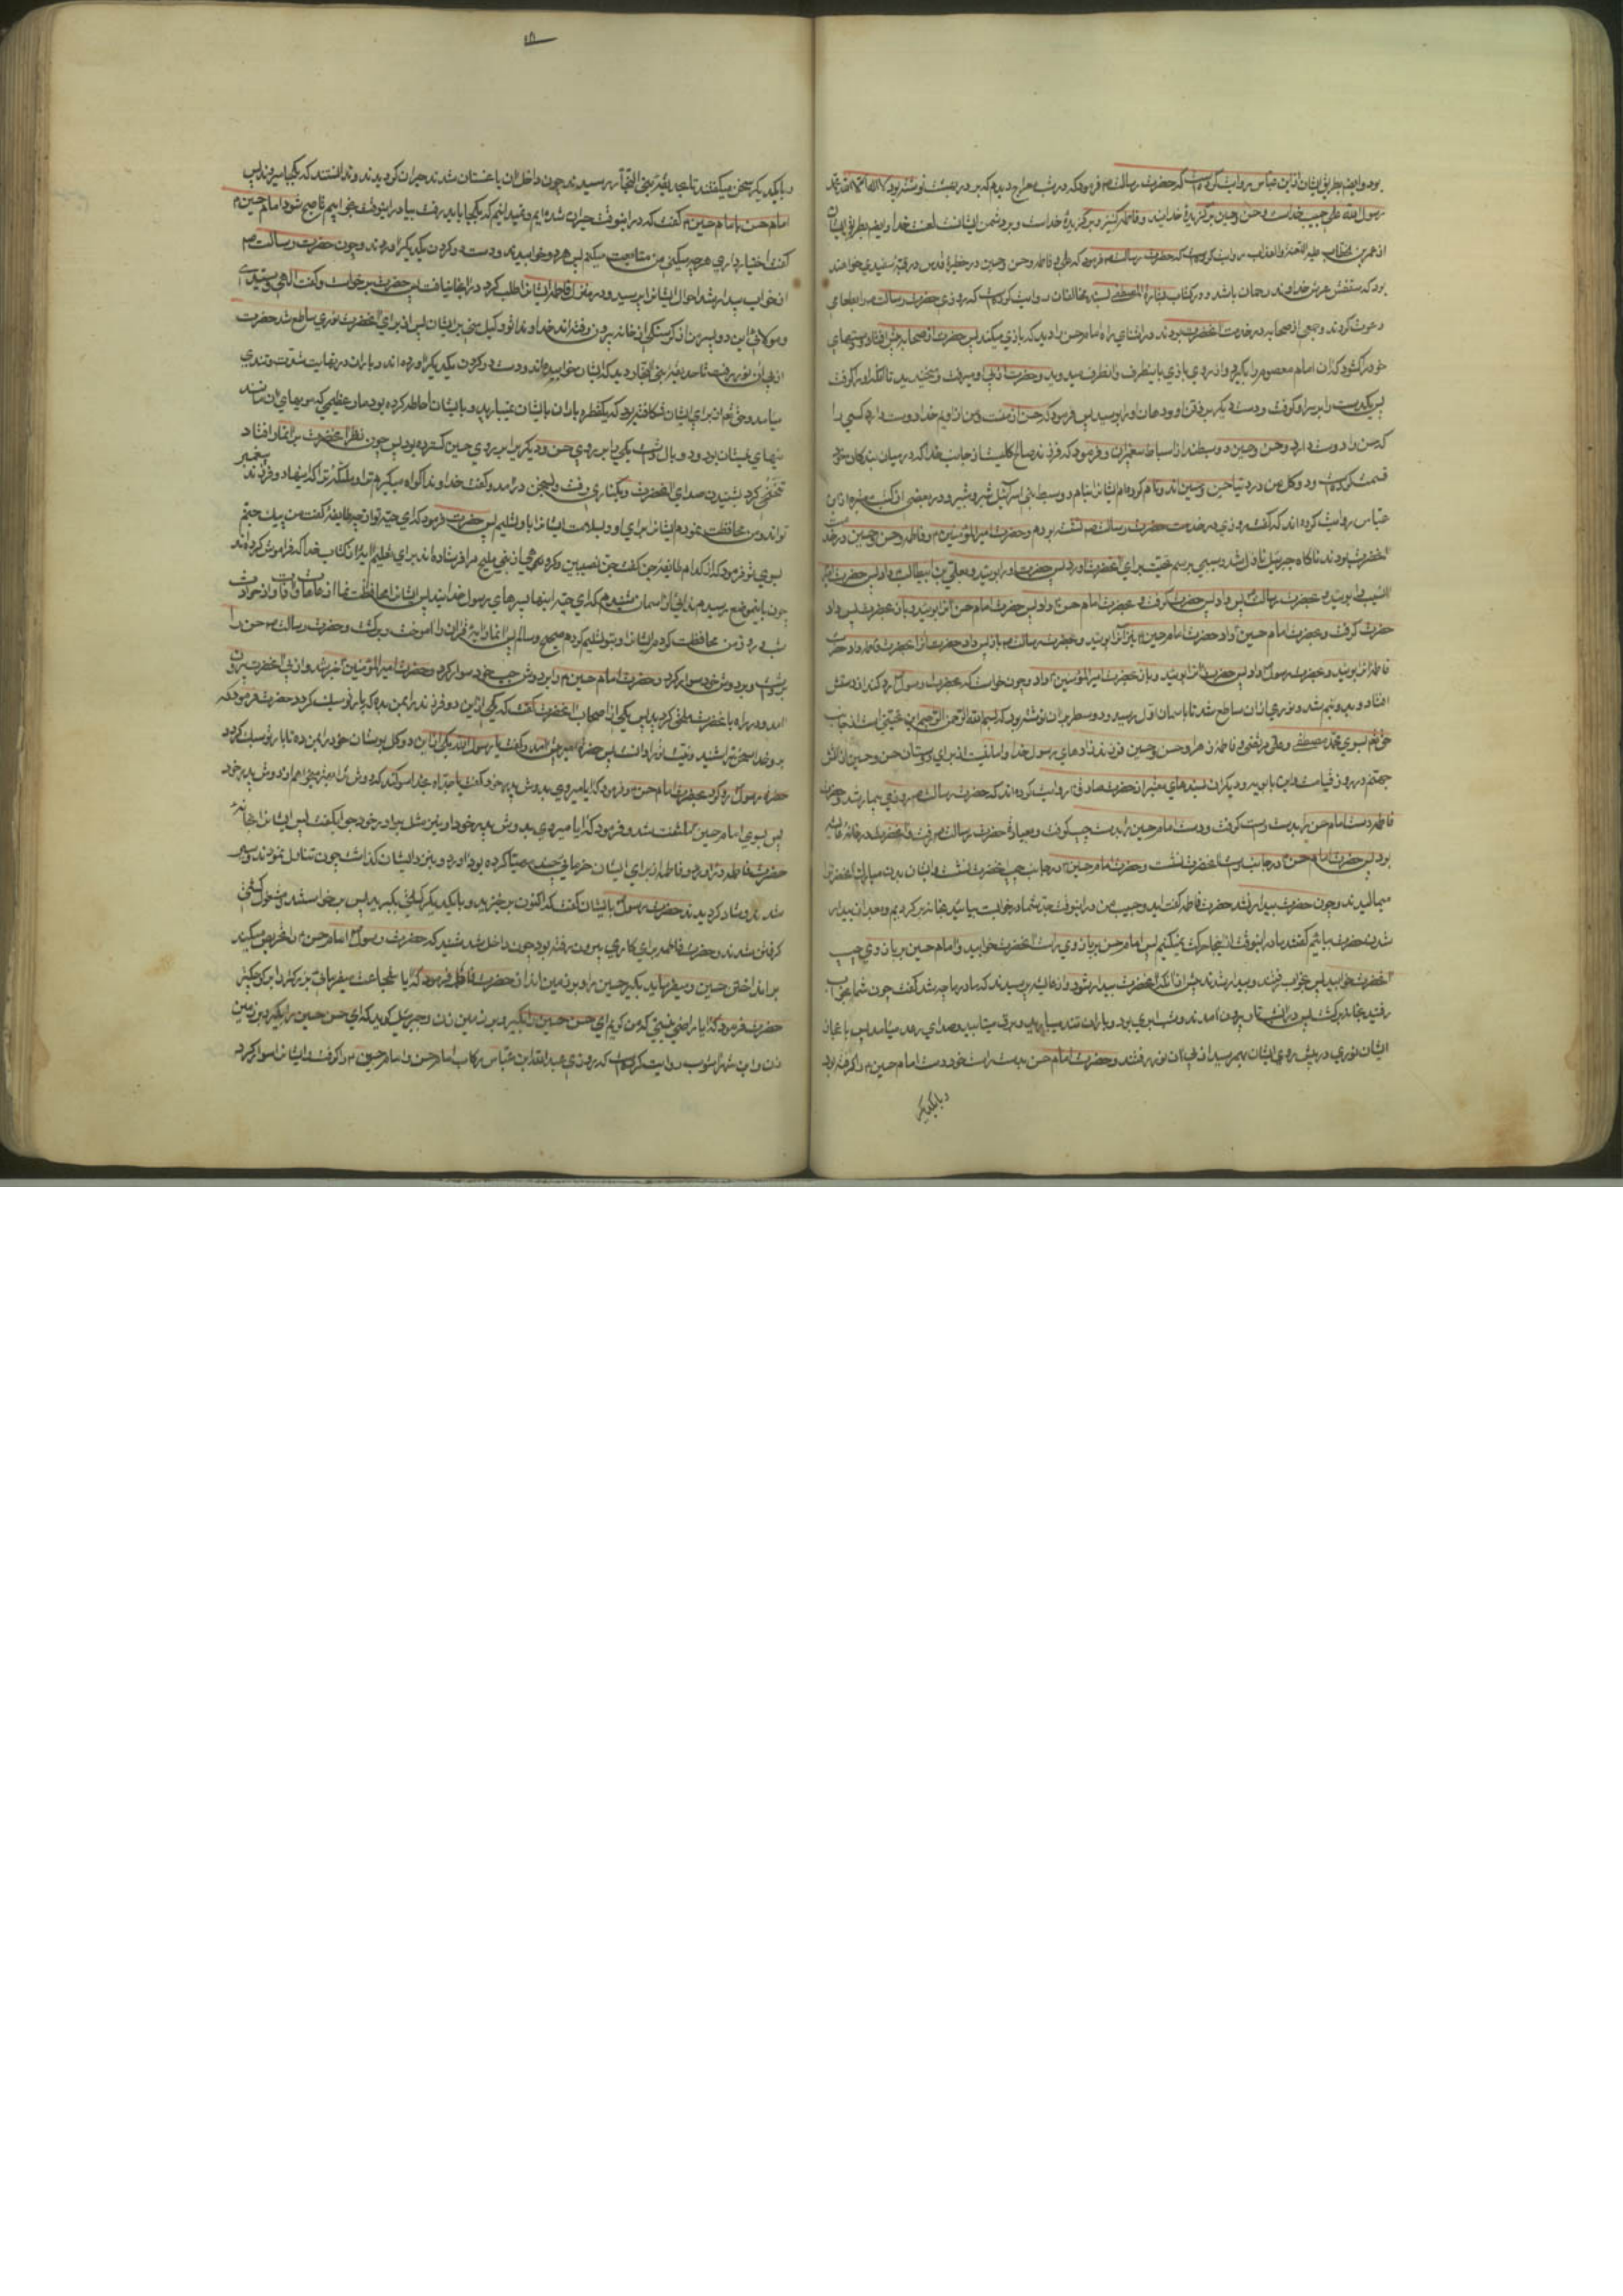 بود و ایضا بطریق ایشان از ابن عباس روایت کرده است که حضرت رسالت ص فرمود که در شب معراج دیدم که بر در بهشت نوشته بود لا اله الا الله محمد
رسول الله علی حبیب خداست و حسن و حسین برگزیدهٔ خدایند و فاطمه کنیز و برگزیدهٔ خداست و بر دشمن ایشانست لعنت خدا و ایضا بطریق ایشان
از عمر بن خطاب علیه اللعنة والعذاب روایت کرده است که حضرت رسالت ص فرمود که علی و فاطمه و حسن و حسین در حظیرهٔ قدس در قبهٔ سفیدی خواهند
بود که سقفش عرش خداوند رحمان باشد و در کتاب بشارة المصطفی بسند مخالفان روایت کرده است که روزی حضرت رسالت ص را بطعامی
دعوت کردند و جمعی از صحابه در خدمت آنحضرت بودند در اثنای راه امام حسن را دید که بازی میکند پس حضرت از صحابه پیش افتاد و دستهای
خود را گشود که آن امام معصوم را بگیرد و از روی بازی باینطرف و آنطرف میدوید و حضرت از پی او میرفت و میخندید تا آنکه او را گرفت
پس یکدست را بر سر او گرفت و دست دیگر بر ذقن او و دهان او را بوسید پس فرمود که حسن از منست و من از اویم خدا دوست دارد کسی را
که حسن را دوست دارد و حسن و حسین دو سبطند از اسباط پیغمبران و فرمود که فرزند صالح گلیست از جانب خدا که در میان بندگان خود
قسمت کرده است و دو گل من در دنیا حسن و حسین اند و نام کرده‌ام ایشانرا بنام دو سبط بنی اسرائیل شبر و شبیر و در بعضی از کتب معتبره از ابن
عباس روایت کرده اند که گفت روزی در خدمت حضرت رسالت ص نشسته بودم و حضرت امیر المؤمنین و فاطمه و حسن و حسین در خدمت
آنحضرت بودند ناگاه جبرئیل نازل شد و سیبی برسم تحیت برای آنحضرت آورد پس حضرت او را بوئید و بعلی بن ابیطالب داد پس حضرت امیر
آن سیب را بوئید و بحضرت رسالت پس داد پس حضرت گرفت و بحضرت امام حسن داد پس حضرت امام حسن آنرا بوئید و بآن حضرت پس داد
حضرت گرفت و بحضرت امام حسین داد حضرت امام حسین نیز آنرا بوئید و بحضرت رسالت ص باز پس داد حضرت آنرا بحضرت فاطمه داد حضرت
فاطمه آنرا بوئید و بحضرت رسول داد پس حضرت آنرا بوئید و باز بحضرت امیر المؤمنین داد و چون خواست که بحضرت رسول رد کند از دستش
افتاد و بدو نیم شد و نوری از آن ساطع شد تا باسمان اول رسید و دو سطر بر آن نوشته بود که بسم الله الرحمن الرحیم این تحیتی است از جانب
حق تعالی بسوی محمد مصطفی و علی مرتضی و فاطمه زهرا و حسن و حسین فرزندزادهای رسول خدا و امانیست از برای دوستان حسن و حسین از آتش
جهنم در روز قیامت و ابن بابویه و دیگران بسندهای معتبر از حضرت صادق روایت کرده اند که حضرت رسالت ص روزی بیمار شد و حضرت
فاطمه دست امام حسن را بدست راست گرفت و دست امام حسین را بدست چپ گرفت و بعیادة حضرت رسالت ص رفت و آنحضرت در خانهٔ عایشه
بود پس حضرت امام حسن در جانب راست آنحضرت نشست و حضرت امام حسین در جانب چپ آنحضرت نشست و ایشان بدن مبارک آنحضرترا
میمالیدند و چون حضرت بیدار نشد حضرت فاطمه گفت ای دو حبیب من در اینوقت جد شما در خوابست بیائید بخانه برگردیم و بعد از بیدار
شدن حضرت بیائیم گفتند ما در اینوقت از اینجا حرکت نمیکنیم پس امام حسن بر بازوی راست آنحضرت خوابید و امام حسین بر بازوی چپ
آنحضرت خوابید پس بخواب رفتند و بیدار شدند پیش از آنکه آنحضرت بیدار شود و از عایشه پرسیدند که مادر ما چه شد گفت چون شما بخواب
رفتید بخانه برگشت پس در آن شب تار بیرون آمدند و شب ابری بود و باران تند میبارید و برق میتابید و صدای رعد میامد پس باعجاز
ایشان نوری در پیش روی ایشان بهم رسید از پی آن نور رفتند و حضرت امام حسن بدست راست خود دست امام حسین را گرفته بود
و با یکدیگر
و با یکدیگر سخن میگفتند تا بحدیقهٔ بنی النجار رسیدند چون داخل آن باغستان شدند حیران گردیدند و ندانستند که بکجا میروند پس
امام حسن با امام حسین گفت که در اینوقت حیران شده‌ایم و نمیدانیم که بکجا باید رفت بیا در اینوقت بخوابیم تا صبح شود امام حسین
گفت اختیار داری هر چه میکنی من متابعت میکنم پس هر دو خوابیدند و دست در گردن یکدیگر آوردند و چون حضرت رسالت ص
از خواب بیدار شد احوال ایشانرا پرسید و در منزل فاطمه ایشانرا طلب کرد در آنجا نیافت پس حضرت برخواست و گفت الهی و سیدی
و مولای این دو پسر من از گرسنگی از خانه بیرون رفته اند خداوندا تو وکیل منی بر ایشان پس از برای آنحضرت نوری ساطع شد حضرت
از پی آن نور رفت تا حدیقهٔ بنی النجار دید که ایشان خوابیده‌اند و دست در گردن یکدیگر آورده اند و باران در نهایت شدت و تندی
میامد و حق تعالی از برای ایشان شکافته بود که یکقطره باران بایشان نمیبارید و بایشان احاطه کرده بود مار عظیمی که مویهای آن مانند
نیهای نیستان بود و دو بال داشت یکی را بر روی حسن و دیگریرا بر روی حسین گسترده بود پس چون نظر آنحضرت بر ایشان افتاد
تنحنحی کرد بشنیدن صدای آنحضرت مار بکناری رفت و بسخن در آمد و گفت خداوندا گواه میگیرم ترا و ملائکه ترا که اینها دو فرزند پیغمبر
تواند و من محافظت نمودم ایشانرا برای او و بسلامت ایشانرا باو تسلیم پس حضرت فرمود که ای حیه تو از چه طایفهٔ گفت من پیک جنم
بسوی تو فرمود که از کدام طایفهٔ جن گفت جن نصیبین و گروهی از بنی ملیح مرا فرستاده اند برای تعلیم آیهٔ از کتاب خدا که فراموش کرده‌اند
چون باینموضع رسیدم ندائی از آسمان شنیدم که ای حیه اینها پسرهای رسول خدایند پس ایشانرا محافظت نما از عاهات و آفات و از حوادث
شب و روز من محافظت کردم ایشانرا و بتو تسلیم کردم صحیح و سالم پس آنمار آیهٔ قرآن را آموخت و برگشت و حضرت رسالت ص حسن را
برداشت و بر دوش راست خود سوار کرد و حضرت امام حسین را بر دوش چپ خود سوار کرد و حضرت امیر المؤمنین از پی آنحضرت بیرون
آمد و در راه بآنحضرت ملحق گردید پس یکی از اصحاب آنحضرت گفت که یکی از این دو فرزند را بمن بده که بار تو سبک گردد حضرت فرمود که
برو خدا سخن ترا شنید و نیت ترا دانست پس حضرت امیر پیش آمد و گفت یا رسول الله یکی از این دو گل بوستان خود را بمن ده تا بار تو سبک گردد
حضرت رسول رو کرد بحضرت امام حسن و فرمود که آیا میروی بدوش پدر خود گفت یا جداه بخدا سوگند که دوش ترا بهتر میخواهم از دوش پدر خود
پس بسوی امام حسین ملتفت شد و فرمود که آیا میروی بدوش پدر خود او نیز مثل برادر خود جواب گفت پس ایشانرا بخانهٔ
حضرت فاطمه آورد و فاطمه از برای ایشان خرمائی چند مهیا کرده بود آورد و بنزد ایشان گذاشت چون تناول نمودند و سیر
شدند و شاد گردیدند حضرت رسول بایشان گفت که اکنون برخیزید و با یکدیگر کشتی بگیرید پس برخواستند و مشغول کشتی
گرفتن شدند و حضرت فاطمه برای کاری بیرون رفته بود چون داخل شد شنید که حضرت رسول امام حسن را تحریص میکند
بر انداختن حسین و میفرماید بگیر حسین را و بر زمین انداز حضرت فاطمه فرمود که آیا شجاعت میفرمائی بزرگتر را بر کوچکتر
حضرت فرمود که آیا راضی نیستی که من گویم ای حسن حسین را بگیر و بر زمین زن و جبرئیل گوید که ای حسین حسن را بگیر و بر زمین
زن و ابن شهر آشوب روایت کرده است که روزی عبد الله ابن عباس رکاب امام حسن و امام حسین را گرفت و ایشانرا سوار کرد